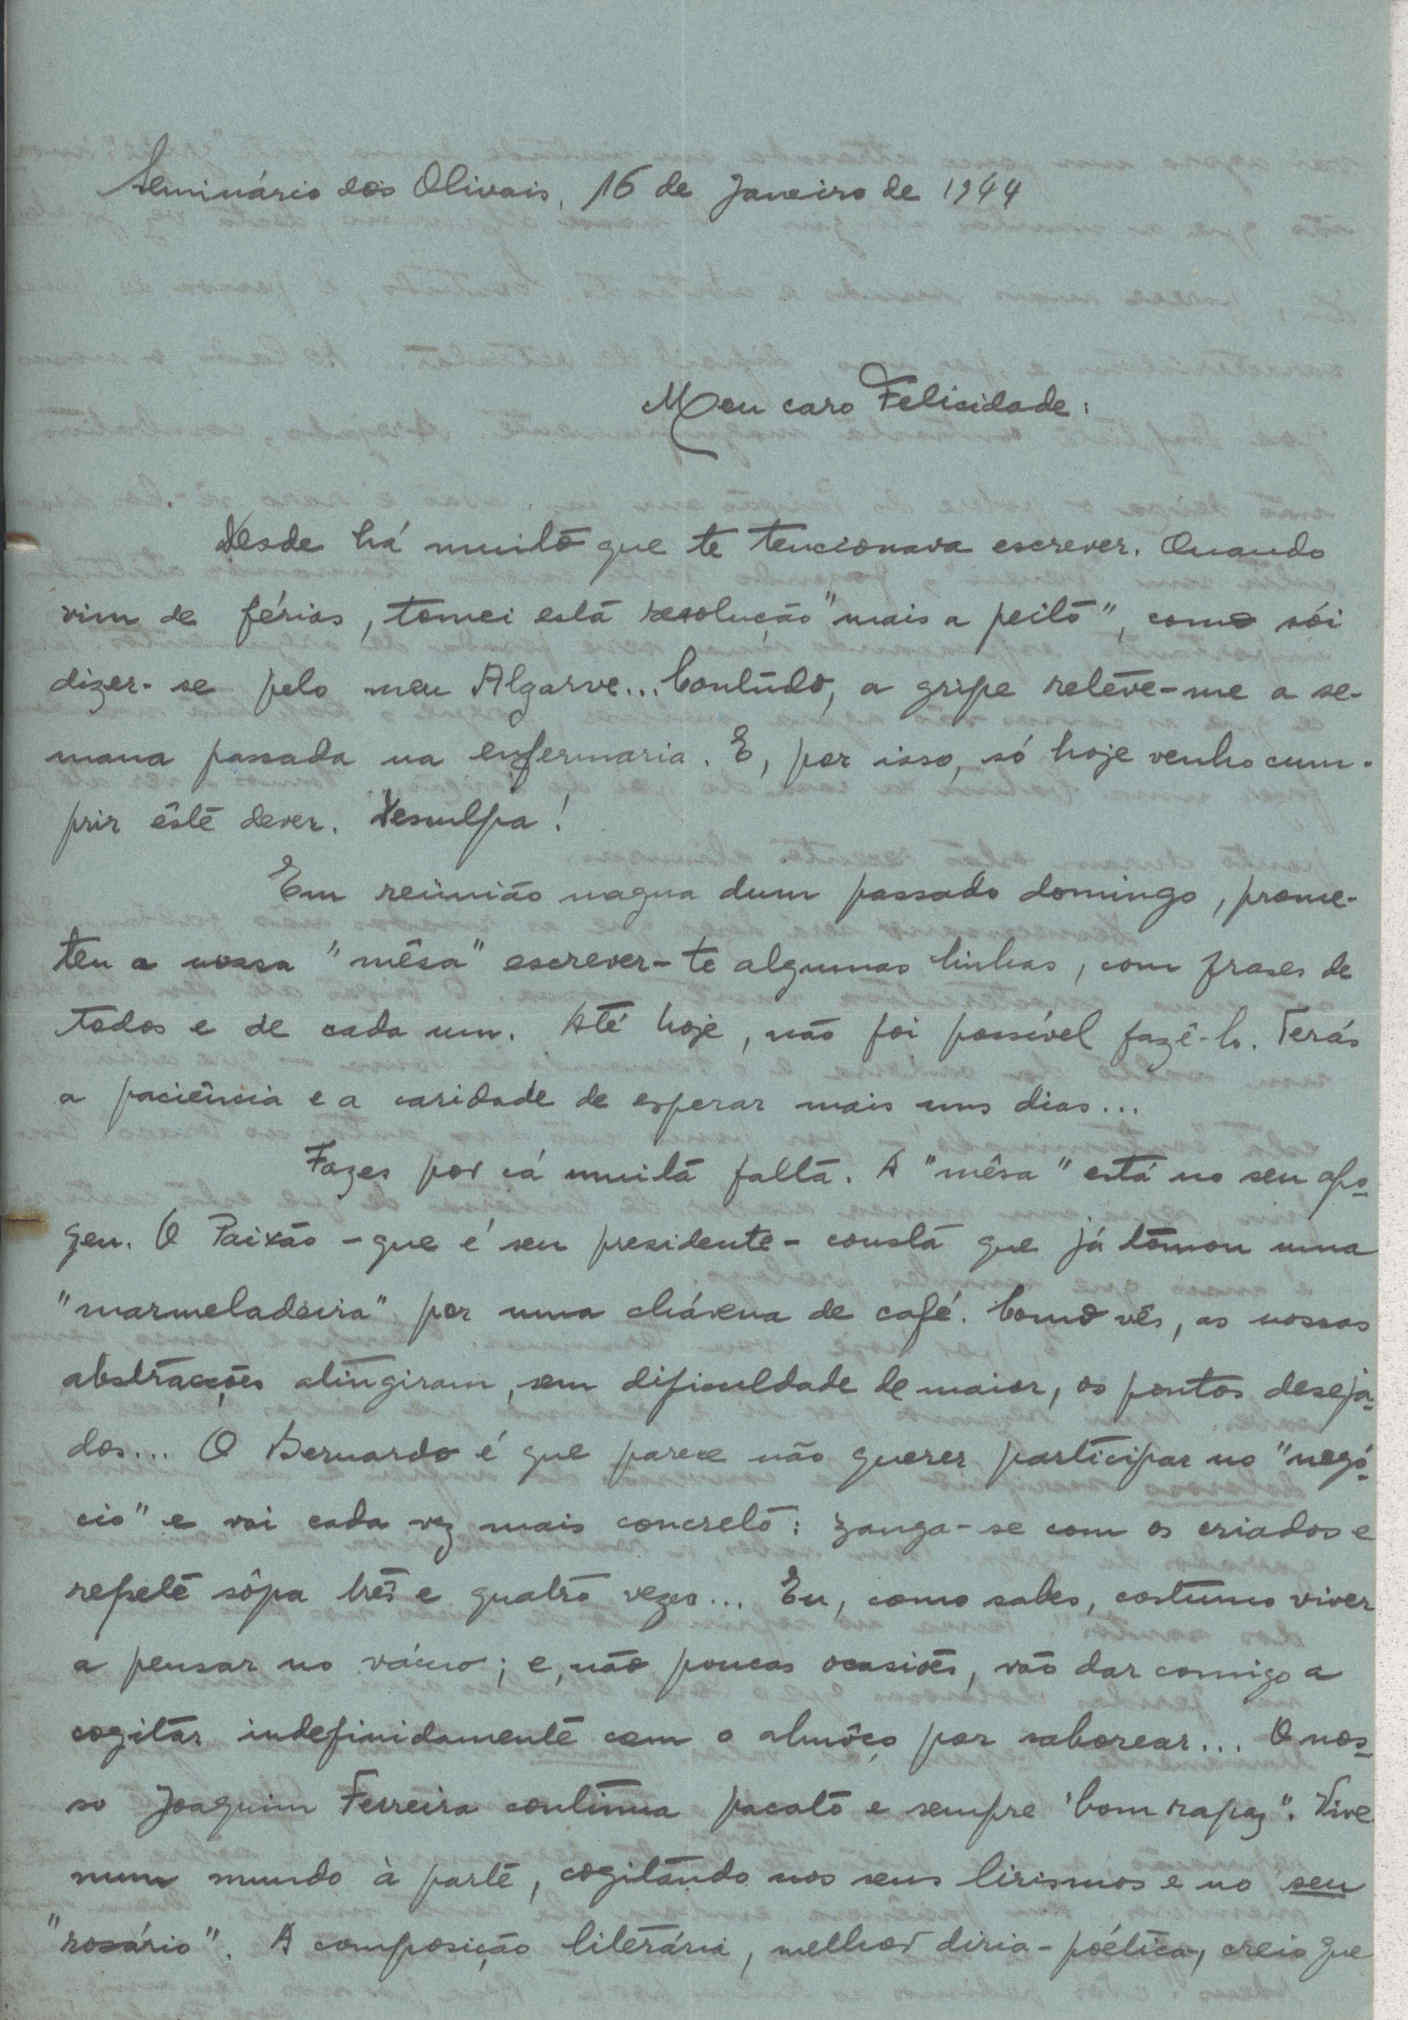 Seminário dos Olivais, 16 de Janeiro de 1944
Meu caro Felicidade:
Desde há muito que te tencionava escrever. Quando
vim de férias, tomei esta resolução "mais a peito", como sói
dizer-se pelo meu Algarve... Contudo, a gripe reteve-me a se-
mana passada na enfermaria. E, por isso, só hoje venho cum-
prir êste dever. Desculpa!
Em reünião magna dum passado domingo, prome-
teu a nossa "mêsa" escrever-te algumas linhas, com frases de
todos e de cada um. Até hoje, não foi possível fazê-lo. Terás
a paciência e a caridade de esperar mais uns dias...
Fazes por cá muita falta. A "mêsa" está no seu apo-
geu. O Paixão - que é seu presidente - consta que já tomou uma
"marmeladeira" por uma chávena de café. Como vês, as nossas
abstracções atingiram, sem dificuldade de maior, os pontos deseja-
dos... O Bernardo é que parece não querer participar no "negó-
cio" e vai cada vez mais concreto: zanga-se com os criados e
repete sôpa três e quatro vezes... Eu, como sabes, costumo viver
a pensar no vácuo; e, não poucas ocasiões, vão dar comigo a
cogitar indefinidamente com o almôço por saborear... O nos-
so Joaquim Ferreira continua pacato e sempre "bom rapaz". Vive
num mundo à parte, cogitando nos seus lirismos e no seu
"rosário". A composição literária, melhor diria - poética, creio que